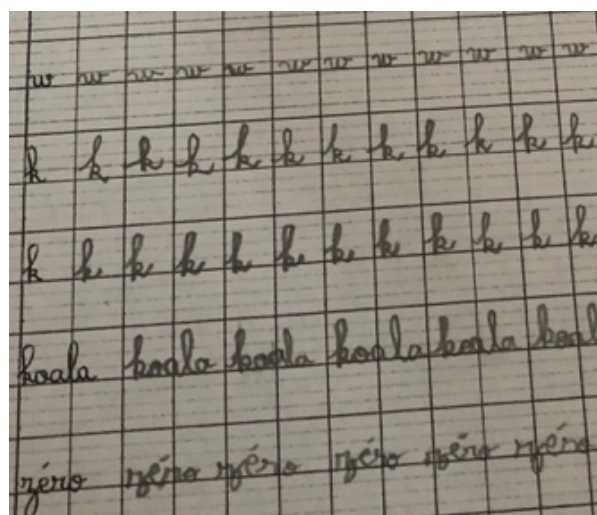 w w w w w w w w w w w w
k k k k k k k k k k k k
k k k k k k k k k k k k
koala koala koala koala koala koal
zéro zéro zéro zéro zéro zéro